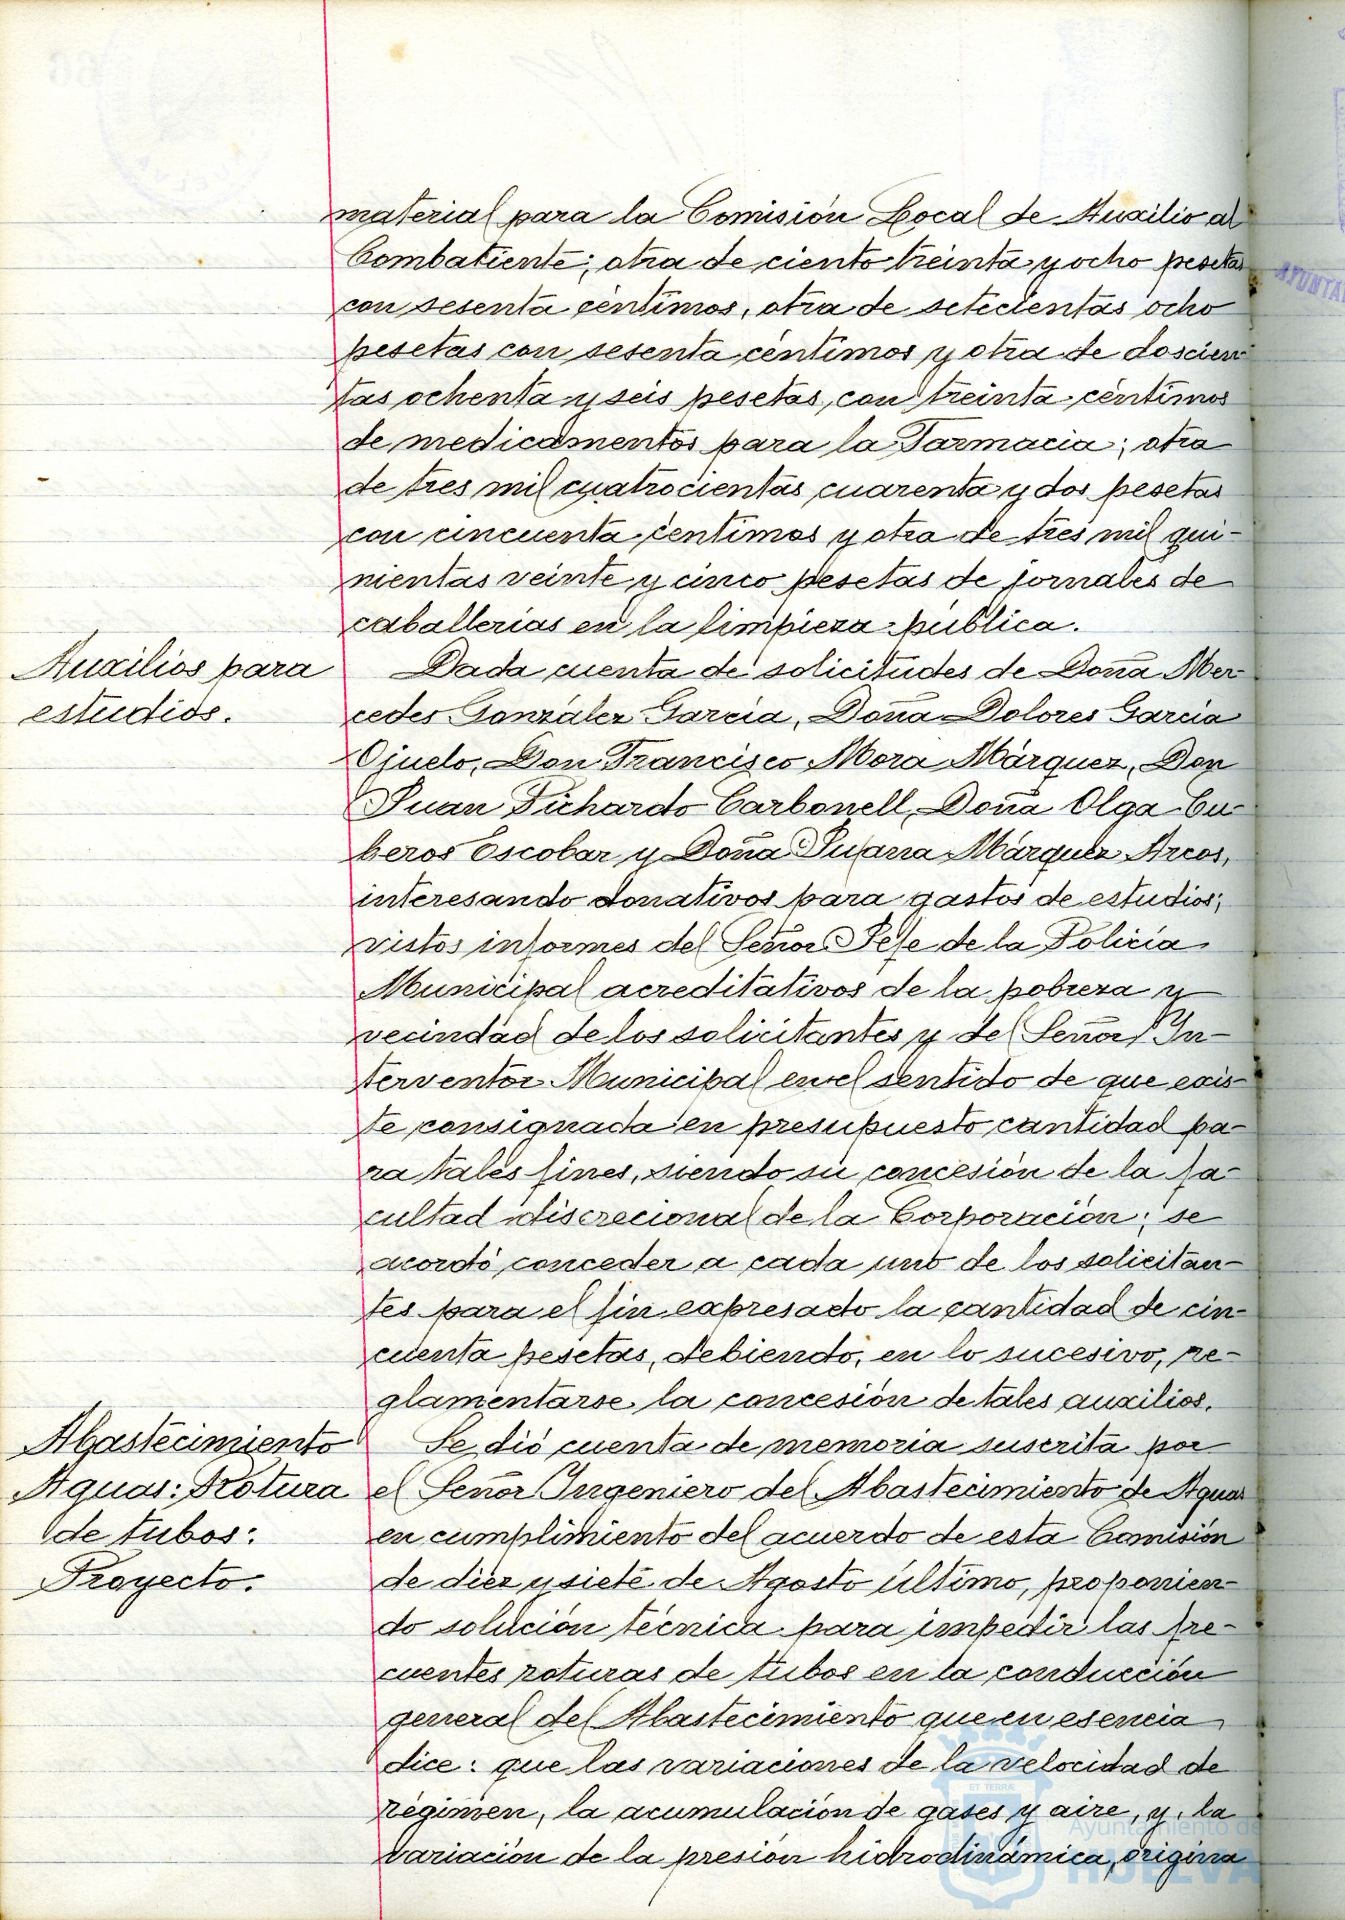 material para la Comisión Local de Auxilio al
Combatiente; otra de ciento treinta y ocho pesetas
con sesenta céntimos, otra de setecientas ocho
pesetas con sesenta céntimos y otra de doscien-
tas ochenta y seis pesetas, con treinta céntimos
de medicamentos para la Farmacia; otra
de tres mil cuatrocientas cuarenta y dos pesetas
con cincuenta céntimos y otra de tres mil qui-
nientas veinte y cinco pesetas de jornales de
caballerías en la limpieza pública.
Auxilios para
estudios.
Dada cuenta de solicitudes de Doña Mer-
cedes González García, Doña Dolores García
Ojuelo, Don Francisco Mora Márquez, Don
Juan Pichardo Carbonell, Doña Olga Cu-
beros Escobar y Doña Juana Márquez Arcos,
interesando donativos para gastos de estudios;
vistos informes del Señor Jefe de la Policía
Municipal acreditativos de la pobreza y
vecindad de los solicitantes y del Señor In-
terventor Municipal en el sentido de que exis-
te consignada en presupuesto cantidad pa-
ra tales fines, siendo su concesión de la fa-
cultad discrecional de la Corporación; se
acordó conceder a cada uno de los solicitan-
tes para el fin expresado la cantidad de cin-
cuenta pesetas, debiendo, en lo sucesivo, re-
glamentarse la concesión de tales auxilios.
Abastecimiento
Aguas: Rotura
de tubos:
Proyecto.
Se dió cuenta de memoria suscrita por
el Señor Ingeniero del Abastecimiento de Aguas
en cumplimiento del acuerdo de esta Comisión
de diez y siete de Agosto último, proponien-
do solución técnica para impedir las fre-
cuentes roturas de tubos en la conducción
general del Abastecimiento que en esencia
dice: que las variaciones de la velocidad de
régimen, la acumulación de gases y aire, y la
variación de la presión hidrodinámica, origina
ET TERRÆ
Ayuntamiento de
HUELVA